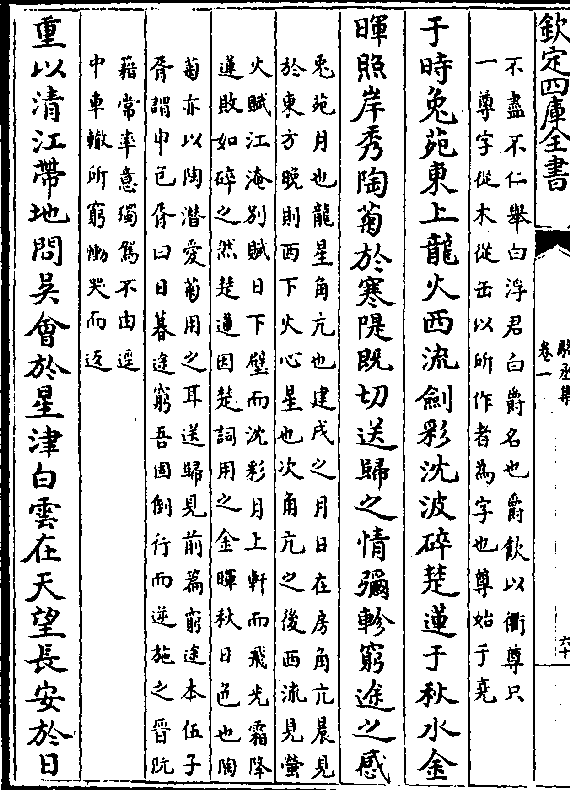 欽定四庫全書
駱丞集
卷一
六十
不盡不仁舉白浮君白爵名也爵飲以衢尊只
一尊字從木從缶以所作者為字也尊始于堯
于時兔苑東上龍火西流劍彩沈波碎楚蓮于秋水金
暉照岸秀陶菊於寒隄既切送歸之情彌軫窮途之感
兔苑月也龍星角亢也建戌之月日在房角亢晨見
於東方晚則西下火心星也次角亢之後西流見螢
火賦江淹别賦日下壁而沈彩月上軒而飛光霜降
蓮敗如碎之然楚蓮因楚詞用之金暉秋日色也陶
菊亦以陶潛愛菊用之耳送歸見前篇窮途本伍子
胥謂申包胥曰日暮途窮吾固倒行而逆施之晉阮
籍常率意獨駕不由逕
中車轍所窮慟哭而返
重以清江帶地問吳會於星津白雲在天望長安於日